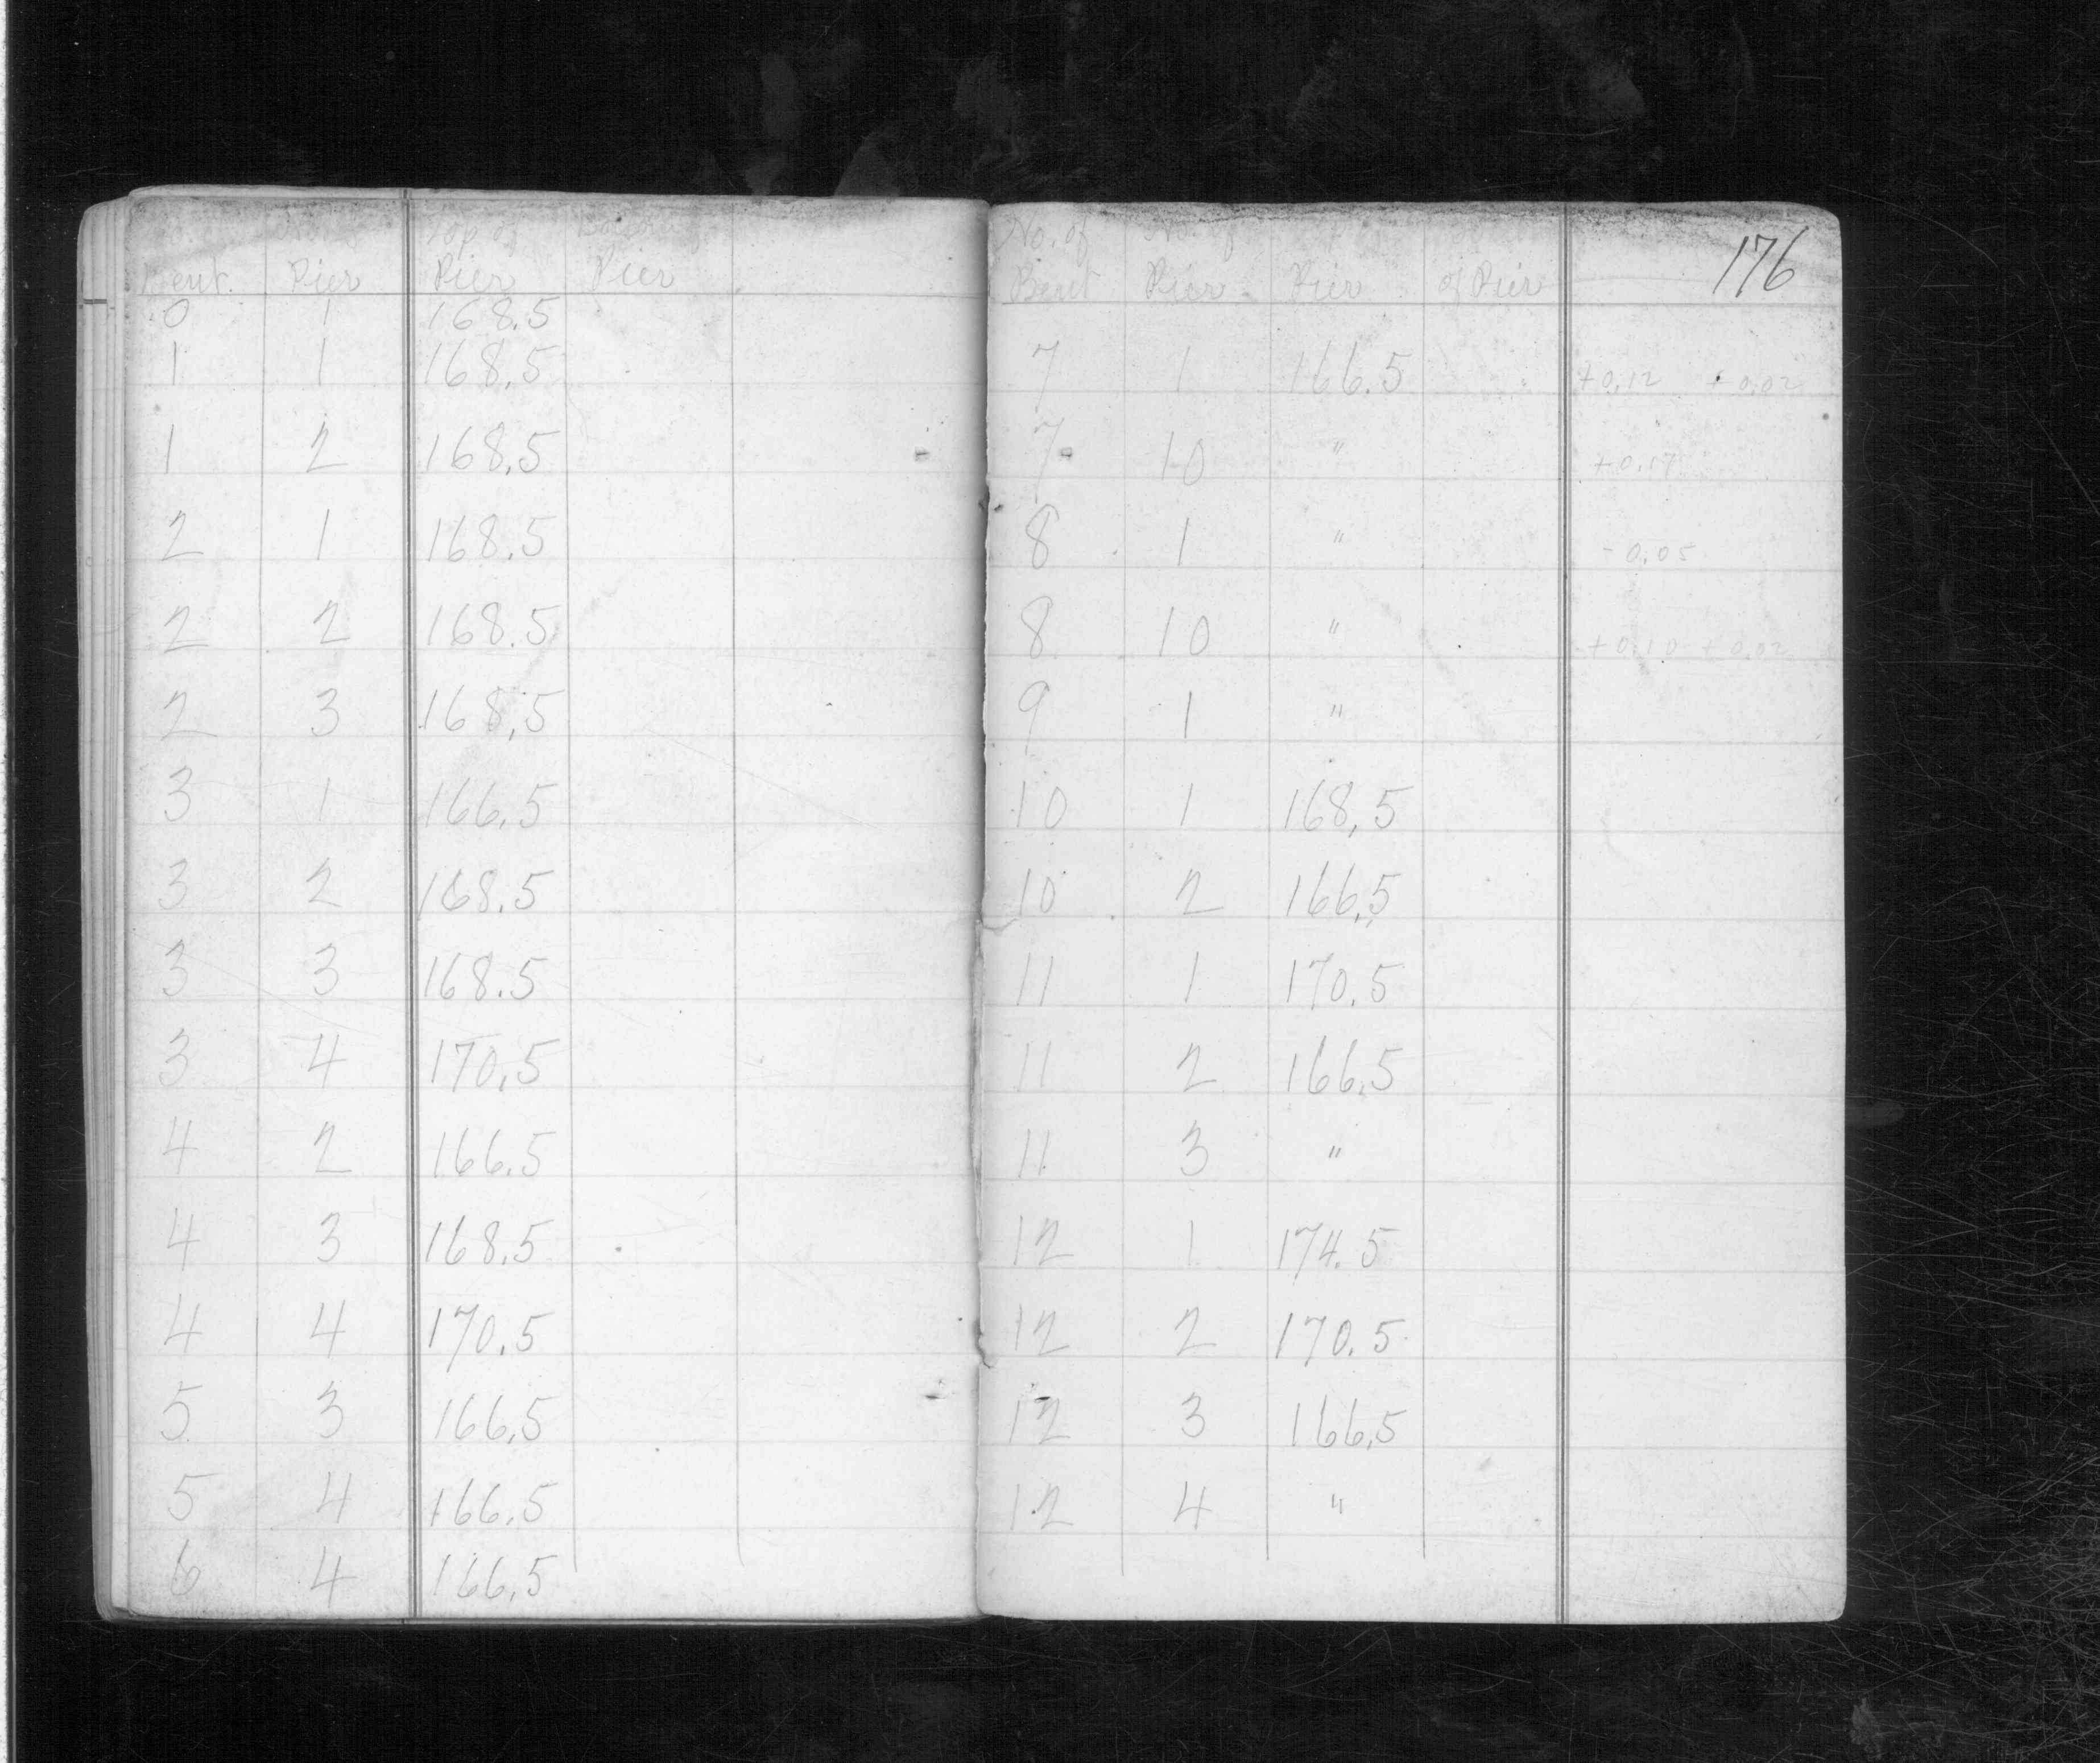 Top of Bottom
Bent. Pier Pier Pier
0 1 168.5
1 1 168.5
1 2 168.5
2 1 168.5
2 2 168.5
2 3 168.5
3 1 166.5
3 2 168.5
3 3 168.5
3 4 170.5
4 2 166.5
4 3 168.5
4 4 170.5
5 3 166.5
5 4 166.5
6 4 166.5
176
No. of No. of
Bent Pier Pier of Pier
7 1 166.5 +0.12 +0.02
7 10 " +0.17
8 1 " -0.05
8 10 " +0.10 +0.02
9 1 "
10 1 168.5
10 2 166.5
11 1 170.5
11 2 166.5
11 3 "
12 1 174.5
12 2 170.5
12 3 166.5
12 4 "